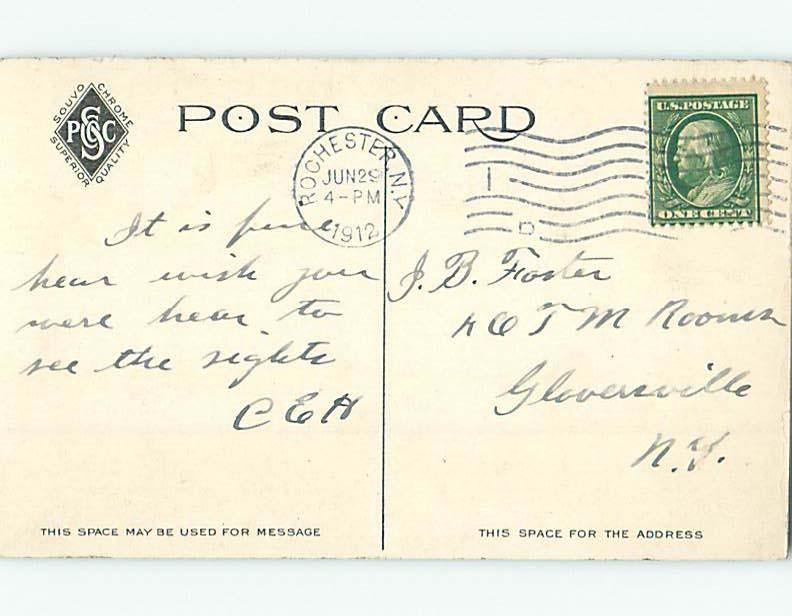 SOUVO CHROME
PSCC
SUPERIOR QUALITY
POST CARD
U.S. POSTAGE
ONE CENT
ROCHESTER, N.Y.
JUN 29
4-PM
1912
It is fine
hear wish you
were hear to
see the sights
C E H
J. B. Foster
K O T M Rooms
Gloversville
N.Y.
THIS SPACE MAY BE USED FOR MESSAGE
THIS SPACE FOR THE ADDRESS